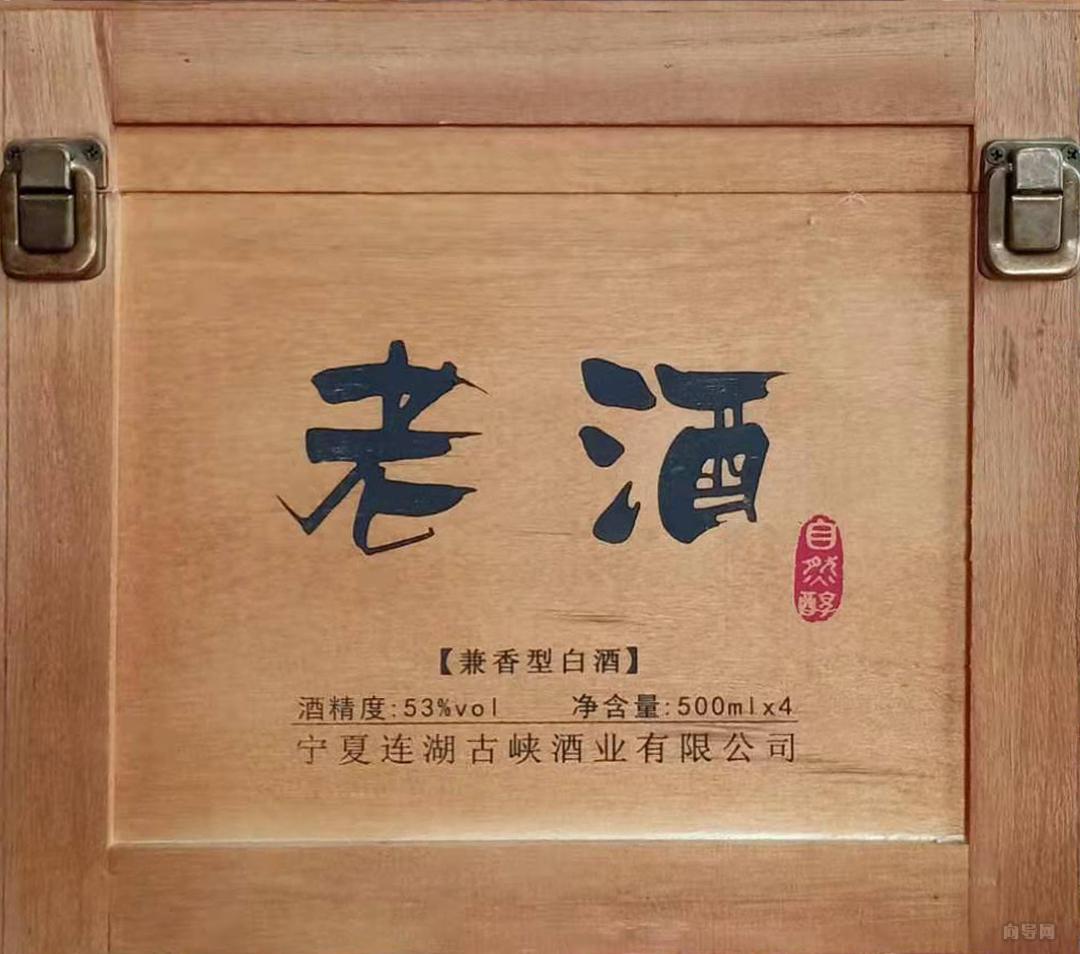 老酒
自然醇
【兼香型白酒】
酒精度:53%vol 净含量:500mlx4
宁夏连湖古峡酒业有限公司
向导网